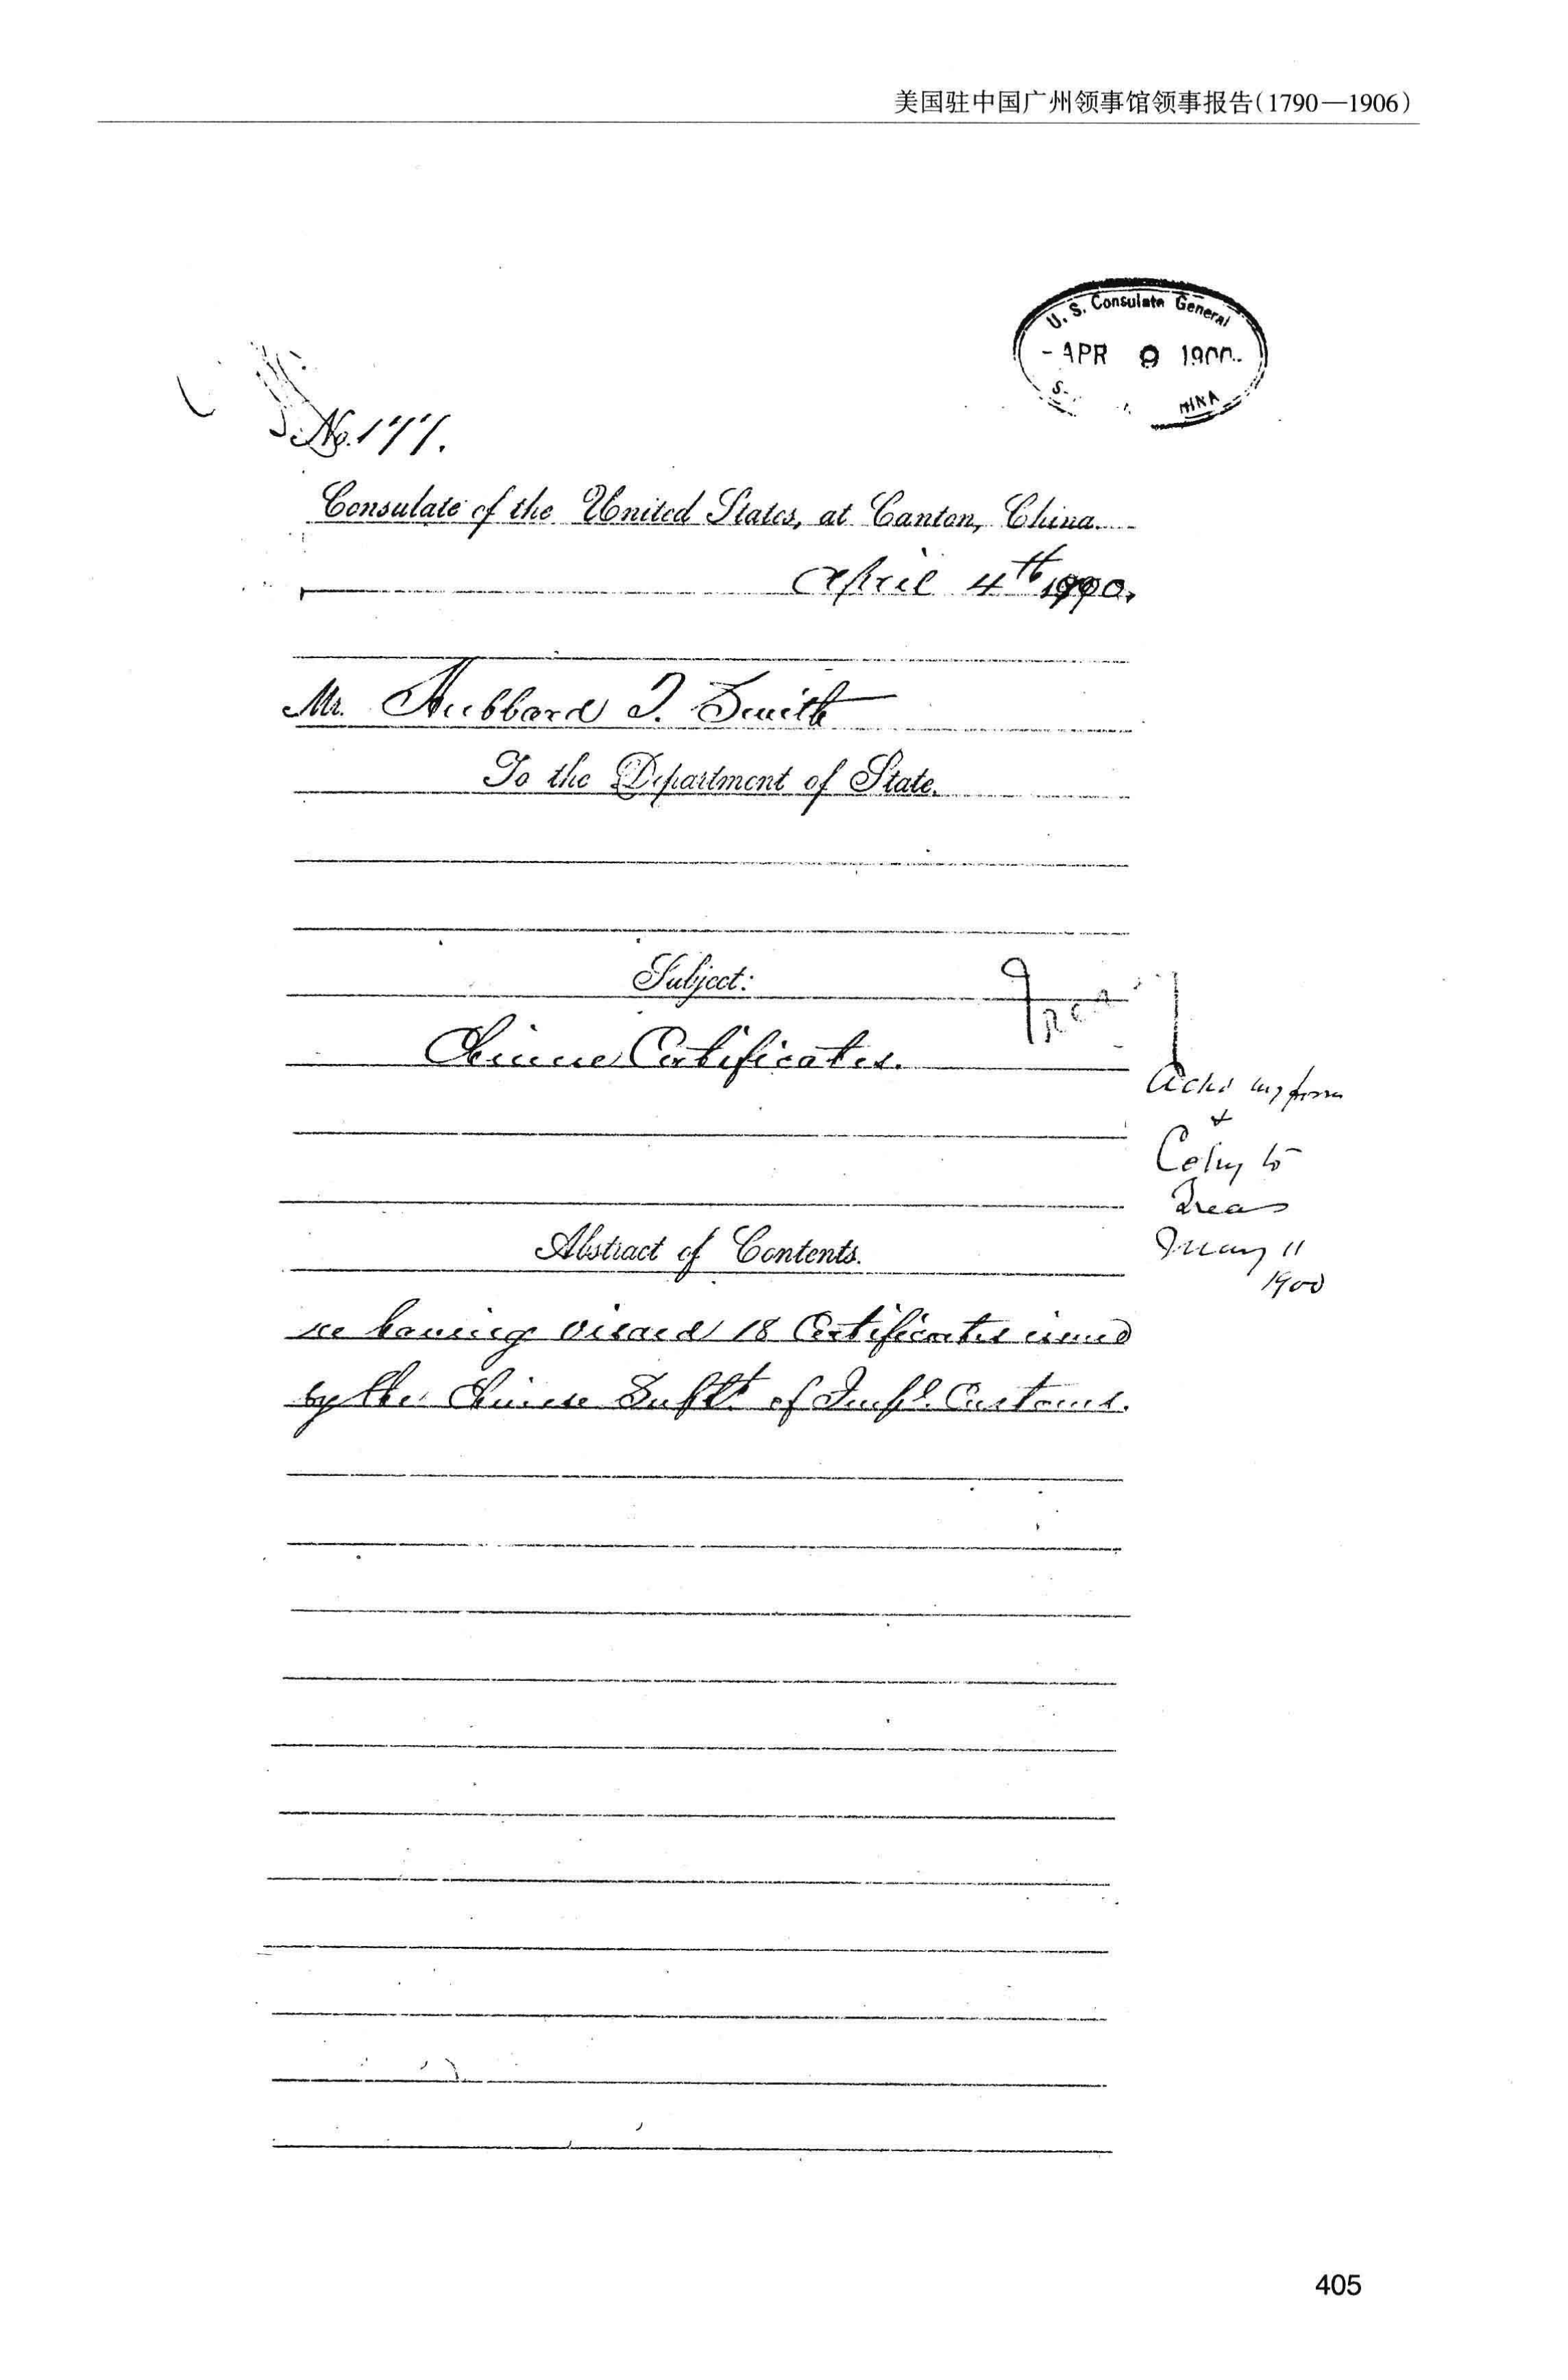 美国驻中国广州领事馆领事报告(1790—1906)
U. S. Consulate General
- APR 9 1900
No. 177.
Consulate of the United States, at Canton, China.
April 4th 1900.
Mr. Hubbard T. Smith
To the Department of State.
Subject:
Chinese Certificates.
Abstract of Contents.
re having visaed 18 Certificates issued
by the Chinese Supt. of Impl. Customs.
Ackd my form
+
Copy to
Treas
May 11
1900
405